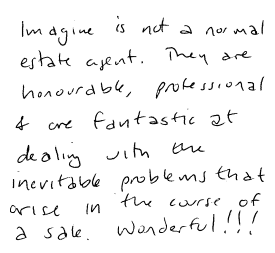 Imagine is not a normal
estate agent. They are
honourable, professional
& are fantastic at
dealing with the
inevitable problems that
arise in the course of
a sale. Wonderful!!!